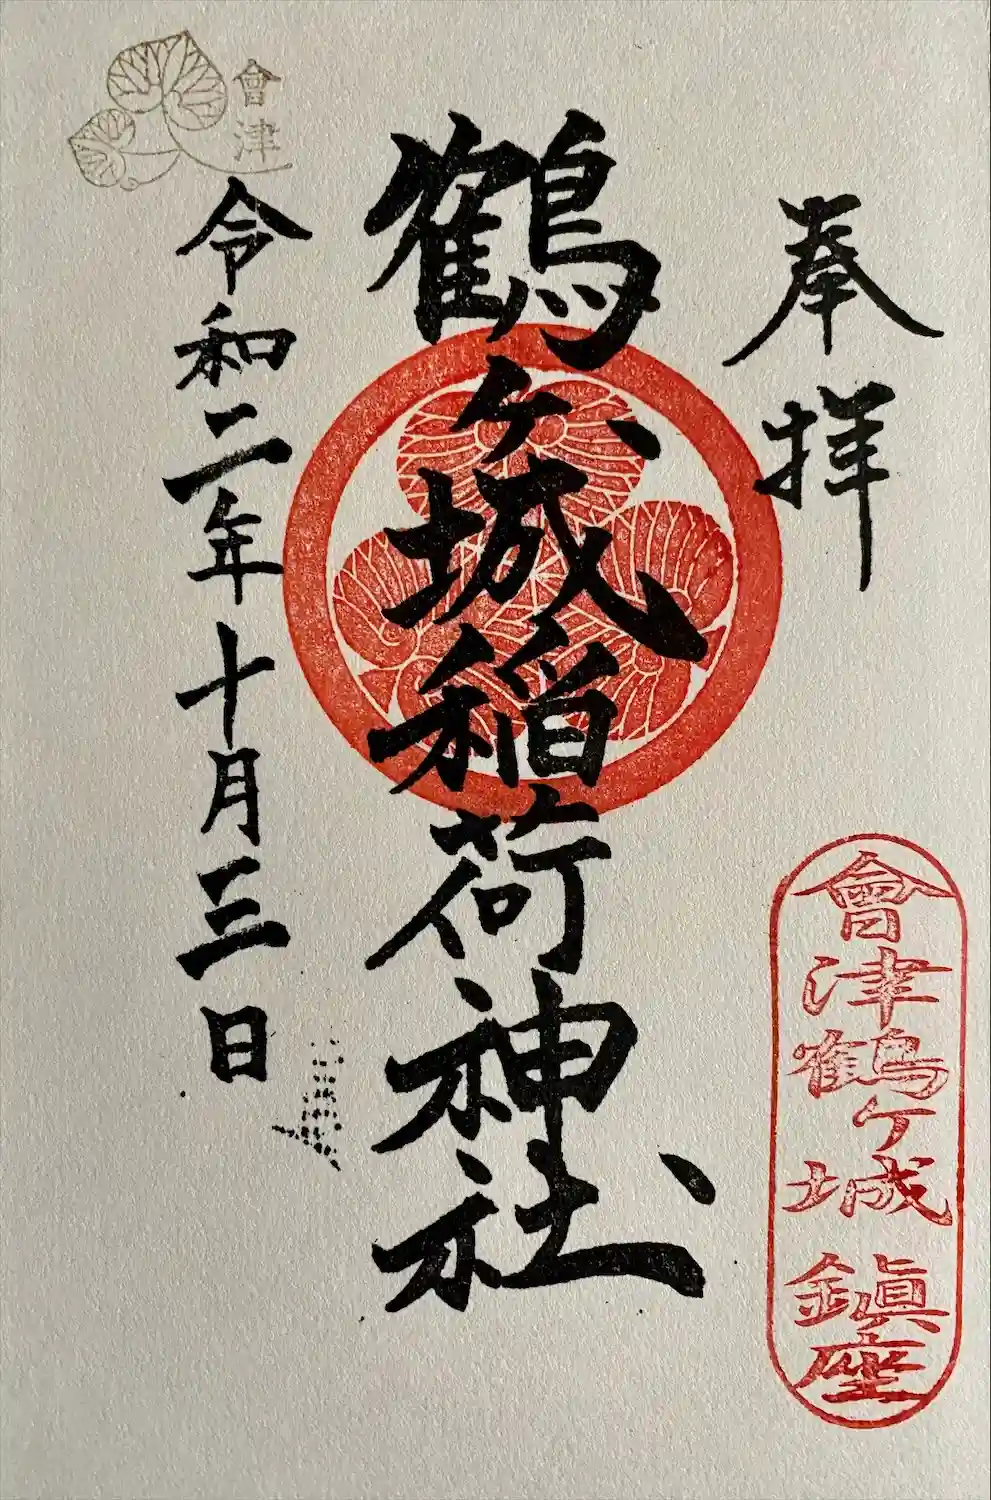 奉拝
會津鶴ヶ城 鎭座
鶴ヶ城稲荷神社
令和二年十月三日
會津